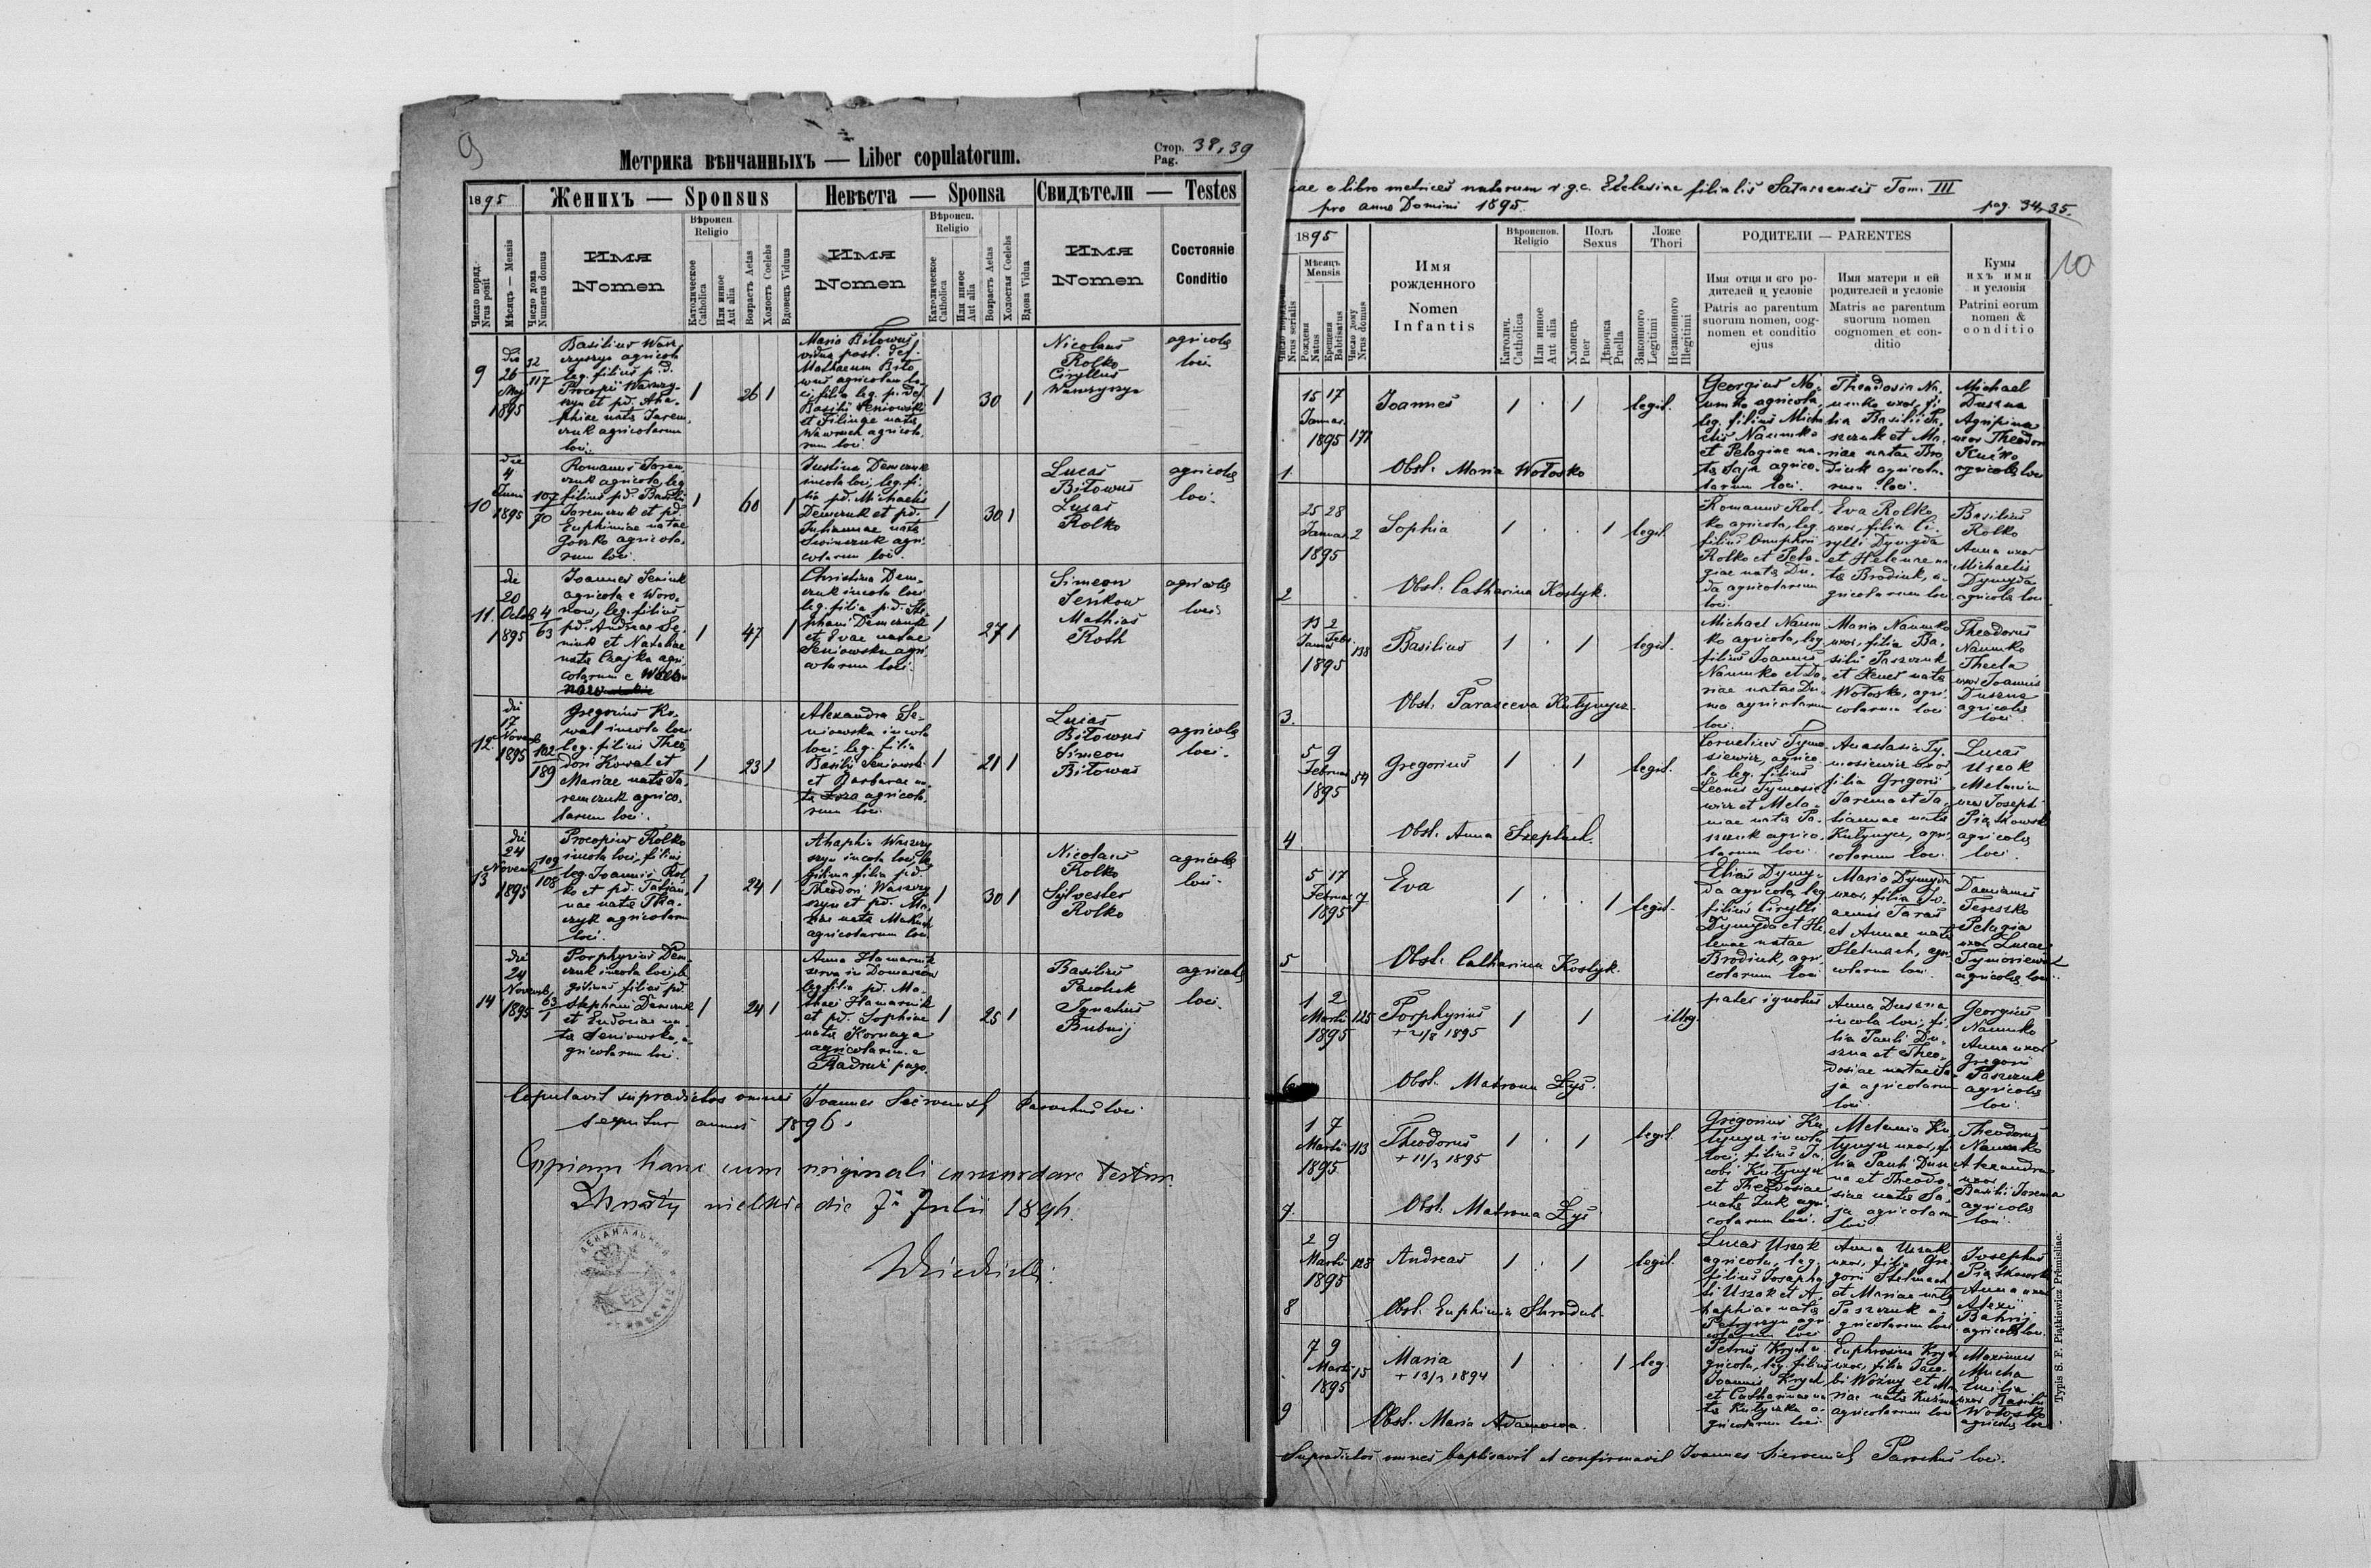 9
Метрика вѣнчанныхъ — Liber copulatorum.
Стор. Pag. 38, 39
1895
Женихъ — Sponsus
Невѣста — Sponsa
Свидѣтели — Testes
Число поряд. Nrus posit
Мѣсяць — Mensis
Число дома Numerus domus
Имя
Nomen
Вѣроисп. Religio
Католическое Catholica
Или инное Aut alia
Возрастъ Aetas
Холостъ Coelebs
Вдовецъ Viduus
Имя
Nomen
Вѣроисп. Religio
Католическое Catholica
Или инное Aut alia
Возрастъ Aetas
Холостая Coelebs
Вдова Vidua
Имя
Nomen
Состояніе
Conditio
9
die
26
Maj
1895
32
117
Basilius
agricola
leg. filius p. d.
Procopii
et pd. Aha-
phiae natae Jarem
czuk agricolarum
loci.
1
26
1
Maria Bitowus
vidua post. def.
Mathaeum Bito
wus agricolam lo-
ci, filia leg. p. def.
Basilii Seniowski
natae
agricola-
rum loci
1
30
1
Nicolaus
Rolko
Ciryllus
agricolae
loci
10
die
4
Juni
1895
107
70
Romanus Jarem
czuk agricola, leg.
filius pd. Basilii
Jaremczuk et pd.
Euphimiae natae
Gorzko agricola-
rum loci.
1
60
1
Justina Demczuk
incola loci, leg. fi-
lia pd. Michaelis
Demczuk et pd.
Julianae natae
agri-
colarum loci.
1
30
1
Lucas
Bitowus
Lucas
Rolko
agricolae
loci.
11.
die
20
Octob
1895
4
63
Joannes Seniuk
agricola e Woro-
now, leg. filius
pd. Andreae Se-
niuk et Nataliae
natae Czajka agri-
colarum e
1
47
1
Christina Dem-
czuk incola loci
leg. filia pd. Ste-
phani Demczuk
et Evae natae
Seniowska agri-
colarum loci.
1
27
1
Simeon
Seńkow
Mathias
Roth
agricolae
loci
12.
die
17
Novemb
1895
102
189
Gregorius Ko-
wal incola loci
leg. filius Theo
dori Kowal et
Mariae natae Ja-
remczuk agrico-
larum loci.
1
23
1
Alexandra Se-
niowska incola
loci, leg. filia
Basilii Seniowski
et Barbarae na-
tae agricola-
rum loci
1
21
1
Lucas
Bitowus
Simeon
Bitowus
agricolae
loci.
13
die
24
Novemb
1895
109
108
Procopius Rolko
incola loci, filius
leg. Joannis Rol
ko et pd. Tatian-
nae natae Tka-
czyk agricolarum
loci.
1
24
1
Ahaphia
incola loci, le-
gitima filia pd.
Theodori
et pd. Ma-
riae natae
agricolarum loci.
1
30
1
Nicolaus
Rolko
Sylvester
Rolko
agricolae
loci.
14
die
24
Novemb
1895
63
1
Porphyrius Dem
czuk incola loci, le-
gitimus filius pd.
Stephani Demczuk
et Eudociae na-
tae Seniowska, a-
gricolarum loci.
1
24
1
Anna Hamarnik
serva in
leg. filia pd. Ma-
thaei Hamarnik
et pd. Sophiae
natae Kornaga
agricolarum e
Radruż pago.
1
25
1
Basilius
Pawluk
Ignatius
Bubnij
agricolae
loci
Copulavit supradictos omnes Joannes Parochus loci
sequitur annus 1896.
Copiam hanc cum originali concordare testor.
die 7 Julii 1896.
iae e libro metrices natorum r. g. c. Ecclesiae filialis Tom. III
pro anno Domini 1895.
pag. 34, 35.
10
1895
Число порядк. Nrus serialis
Мѣсяцъ Mensis
Рожденя Natus
Крещеня Babtisatus
Число дому Nrus domus
Имя
рожденного
Nomen
Infantis
Вѣроиспов. Religio
Католич. Catholica
Или инное Aut alia
Полъ Sexus
Хлопець Puer
Дѣвочка Puella
Ложе Thori
Законного Legitimi
Незаконного Illegitimi
РОДИТЕЛИ — PARENTES
Имя отця и єго ро-
дителей и условіе
Patris ac parentum
suorum nomen, cog-
nomen et conditio
ejus
Имя матери и ей
родителей и условіе
Matris ac parentum
suorum nomen
cognomen et con-
ditio
Кумы
ихъ имя
и условія
Patrini eorum
nomen &
conditio
1
15 17
Januar.
1895
177
Joannes
1
1
legit.
Georgius Na-
umko agricola,
leg. filius Micha
elis Naumko
et Pelagiae na-
tae Saja agrico-
larum loci.
Theodosia Na-
umko uxor, fi-
lia Basilii Pa-
szczuk et Ma-
riae natae Bro
diuk agricola-
rum loci.
Michael
Duszna
Agripina
uxor Theodori
agricolae loci
Obst. Maria Wołosko
2
25 28
Januar
1895
2
Sophia
1
1
legit.
Romanus Rol-
ko agricola, leg.
filius Onuphrii
Rolko et Pela-
giae natae Du-
da agricolarum
loci.
Eva Rolko
uxor, filia Ci-
rylli Dymyda
et Helenae na
tae Brodiuk, a-
gricolarum loci
Basilius
Rolko
Anna uxor
Michaelis
Dymyda
agricolae loci
Obst. Catharina Kostyk.
3.
13 2
Januar Febr.
1895
138
Basilius
1
1
legit.
Michael Naum
ko agricola, leg.
filius Joannis
Naumko et Do-
riae natae Du-
ma agricolarum
loci.
Maria Naumko
uxor, filia Ba-
silii Paszczuk
et natae
Wołosko, agri-
colarum loci
Theodorus
Naumko
Thecla
uxor Joannis
Duszna
agricolae
loci
Obst. Parasceva Kutynycz.
4
5 9
Februar
1895
54
Gregorius
1
1
legit.
Cornelius Tymo-
siewicz, agrico-
la leg. filius
Leonis Tymosie
wicz et Mela-
niae natae Pa-
szczuk agrico-
larum loci.
Anastasia Ty-
mosiewicz uxor,
filia Gregorii
Jarema et Ta-
tiannae natae
Kutynycz, agri-
colarum loci.
Lucas
Uszak
Melania
uxor Josephi
agricolae
loci.
Obst. Anna
5
5 17
Februar
1895
7
Eva
1
1
legit.
Elias Dymy-
da agricola, leg.
filius Cirylli
Dymyda et He-
lenae natae
Brodiuk, agri-
colarum loci
Maria Dymyda
uxor, filia Jo-
annis Taras
et Annae natae
Stelmach, agri-
colarum loci.
Damianus
Tereszko
Pelagia
uxor Lucae
Tymosiewicz
agricolae loci.
Obst. Catharina Kostyk.
6
1 2
Martii
1895
125
Porphyrius
+ 21/8 1895
1
1
illeg.
pater ignotus
Anna Duszna
incola loci, fi-
lia Pauli Du-
szna et Theo-
dosiae natae Sa-
ja agricolarum
loci.
Georgius
Naumko
Anna uxor
Gregorii
Paszczuk
agricolae
loci.
Obst. Matrona Łyś.
7
1 7
Martii
1895
113
Theodorus
+ 11/3 1895
1
1
legit.
Gregorius Ku-
tynycz incola
loci, filius Ja-
cobi Kutynycz
et Theodosiae
natae Żuk agri-
colarum loci.
Melania Ku-
tynycz uxor, fi-
lia Pauli Dusz
na et Theodo-
siae natae Sa-
ja agricolarum
loci
Theodorus
Naumko
Alexandra
uxor
Basilii Jarema
agricolae
loci.
Obst. Matrona Łyś
8
2 9
Martii
1895
128
Andreas
1
1
legit.
Lucas Uszak
agricola, leg.
filius Josapha
ti Uszak et A-
haphiae natae
agri-
colarum loci
Anna Uszak
uxor, filia Gre-
gorii Stelmach
et Mariae natae
Paszczuk a-
gricolarum loci
Josephus
Anna uxor
Alexii
Bahrij
agricolae loci.
Obst. Euphimia
9
7 9
Martii
1895
15
Maria
+ 13/3 1894
1
1
leg.
Petrus Krych a-
gricola, leg. filius
Joannis Krych
et Catharinae na-
tae a-
gricolarum loci
Euphrosina Krych
uxor, filia Jaco-
bi Woźny et Ma
riae natae
agricolarum loci
Maximus
Mucha
Emilia
uxor Basilii
Wołosko
agricolae loci
Obst. Maria Adamowa.
Supradictos omnes baptisavit et confirmavit Joannes Parochus loci.
Typis S. F. Piątkiewicz Premisliae.